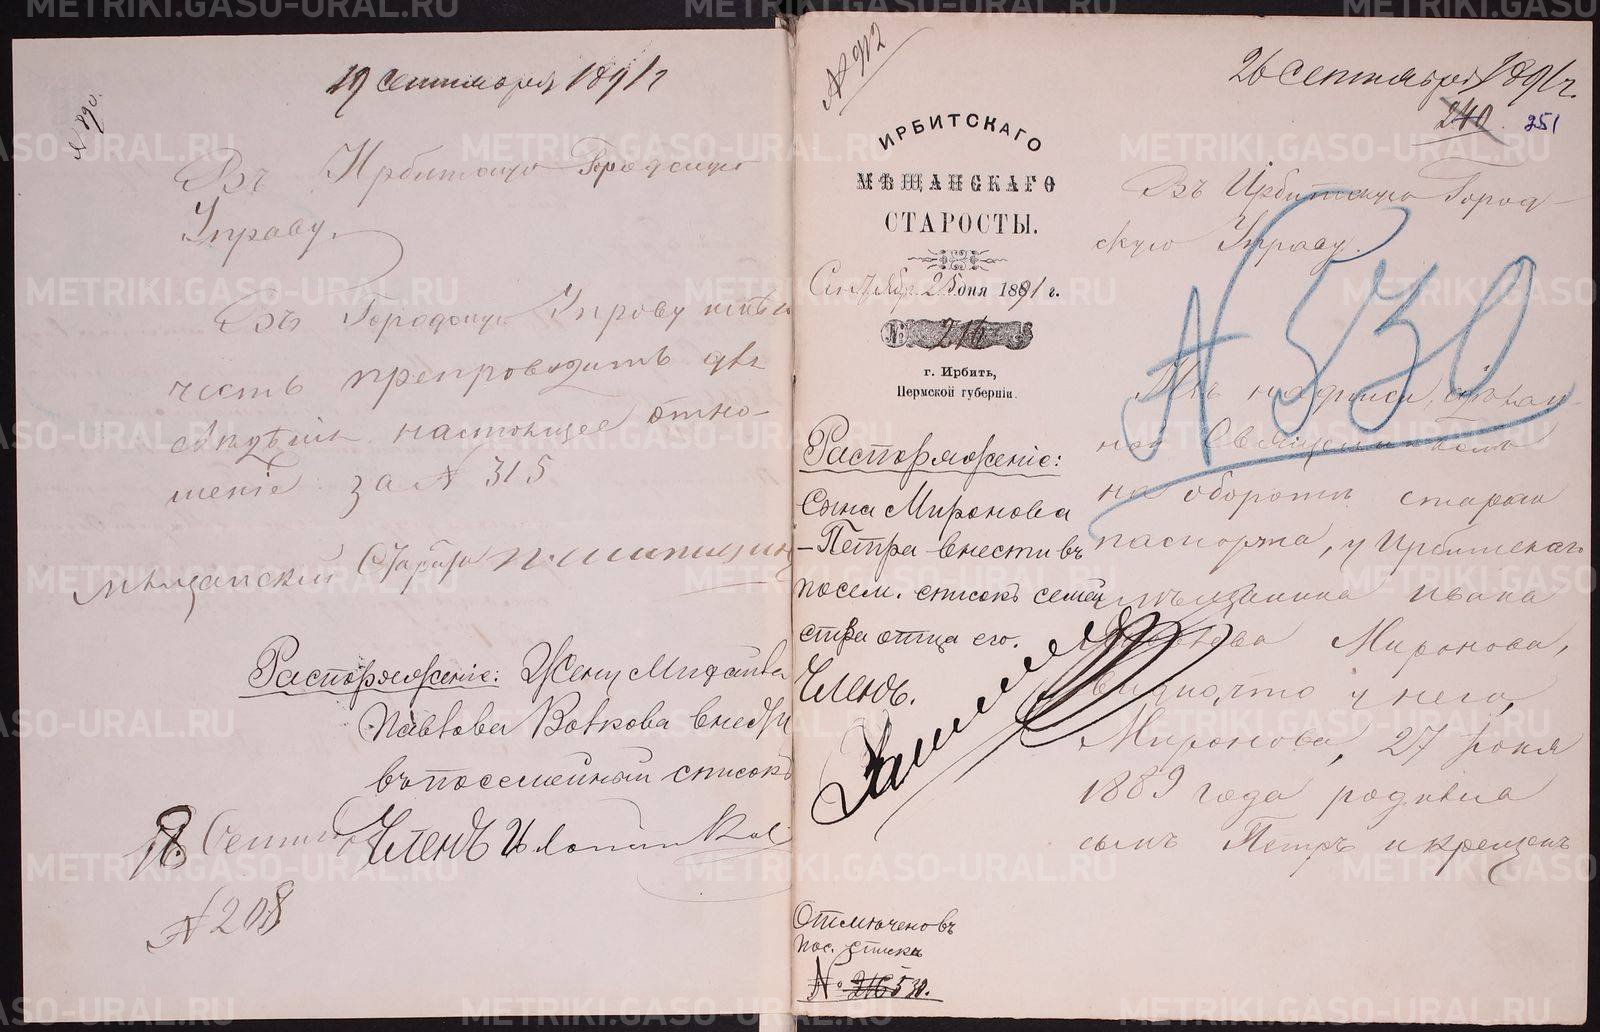 19 сентября 1891 г
№ 890.
Въ Ирбитскую Городскую
Управу.
Въ Городскую Управу имѣю
честь препроводить для
свѣдѣнія настоящее отно-
шеніе за № 315
Мѣщанскій Староста
Распоряженіе: Жену
Павлова Волкова внести
въ посемейный списокъ
Членъ
18 Сентяб
№ 208
№ 912
26 сентября 1891 г.
240 251
ИРБИТСКАГО
МѢЩАНСКАГО
СТАРОСТЫ.
Сентябр 25 дня 1891 г.
№ 216
г. Ирбить,
Пермской губерніи.
Въ Ирбитскую Город-
скую Управу.
№ 530
Изъ надписи, сдѣлан-
ной Священникомъ
на оборотѣ стараго
паспорта, у Ирбитскаго
мѣщанина Ивана
Миронова,
видно, что у него,
Миронова, 27 Іюня
1889 года родился
сынъ Петръ и крещенъ
Распоряженіе:
Сына Миронова
– Петра внести въ
посем. списокъ семей
ства отца его.
Членъ.
Отмѣчено въ
пос. списке
№ 216 530.
METRIKI.GASO-URAL.RU